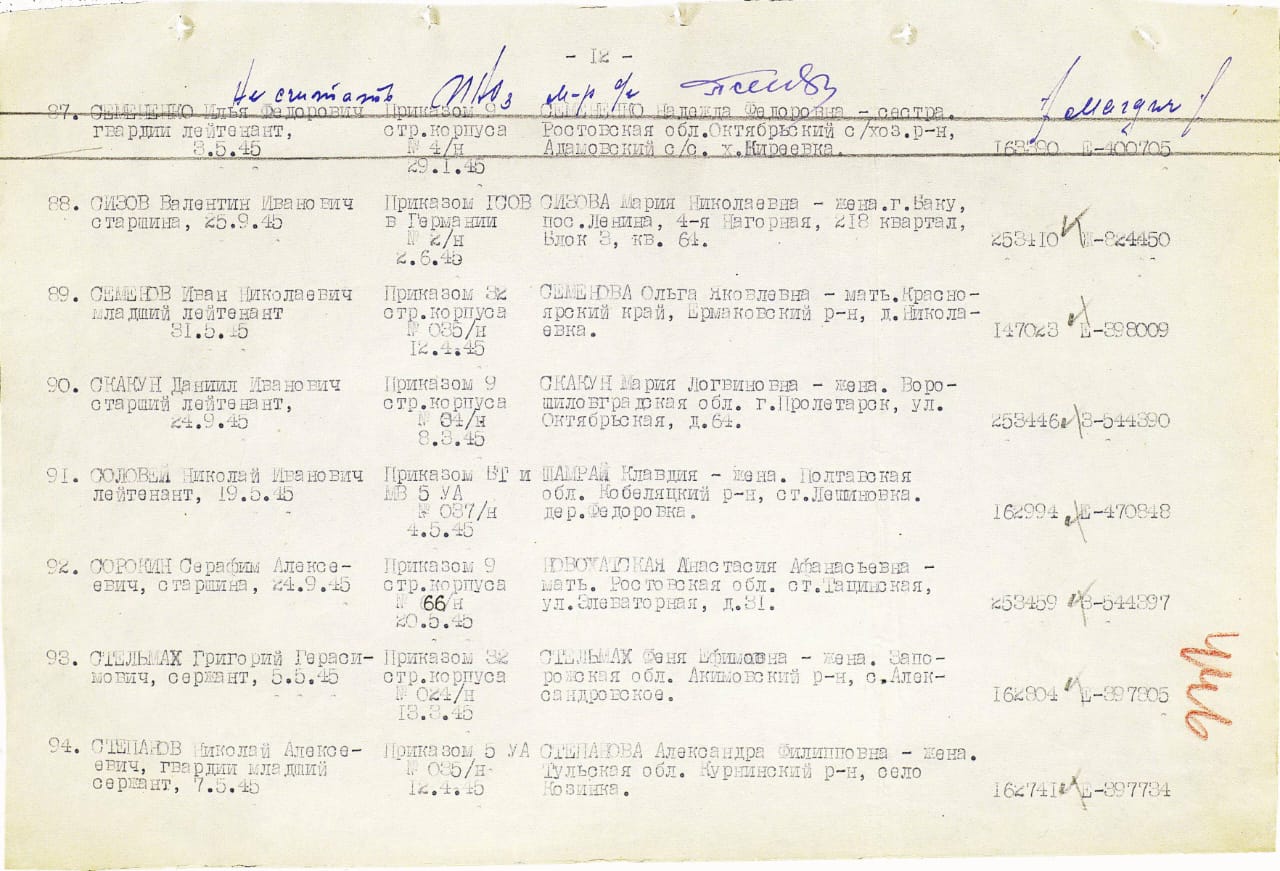 - 12 -
Не считать
87. СЕМЕНЕНКО Илья Федорович Приказом 9 СЕМЕНЕНКО Надежда Федоровна - сестра.
гвардии лейтенант, стр.корпуса Ростовская обл.Октябрьский с/хоз.р-н,
3.5.45 № 4/н Адамовский с/с. х.Киреевка. 163390 Е-400705
29.1.45
88. СИЗОВ Валентин Иванович Приказом ГСОВ СИЗОВА Мария Николаевна - жена.г.Баку,
старшина, 25.9.45 в Германии пос.Ленина, 4-я Нагорная, 218 квартал,
№ 2/н Блок 3, кв. 64. 253410 Е-824450
2.6.45
89. СЕМЕНОВ Иван Николаевич Приказом 32 СЕМЕНОВА Ольга Яковлевна - мать.Красно-
младший лейтенант стр.корпуса ярский край, Ермаковский р-н, д.Никола-
31.5.45 № 035/н евка. 147023 Е-398009
12.4.45
90. СКАКУН Даниил Иванович Приказом 9 СКАКУН Мария Логвиновна - жена. Воро-
старший лейтенант, стр.корпуса шиловградская обл. г.Пролетарск, ул.
24.9.45 № 34/н Октябрьская, д.64. 253446 З-544390
8.3.45
91. СОЛОВЕЙ Николай Иванович Приказом БТ и ШАМРАЙ Клавдия - жена. Полтавская
лейтенант, 19.5.45 МВ 5 УА обл. Кобеляцкий р-н, ст.Лешиновка.
№ 037/н дер.Федоровка. 162994 Е-470848
4.5.45
92. СОРОКИН Серафим Алексе- Приказом 9 НОВОХАТСКАЯ Анастасия Афанасьевна -
евич, старшина, 24.9.45 стр.корпуса мать. Ростовская обл. ст.Тацинская,
№ 66/н ул.Элеваторная, д.31. 253459 З-544397
20.5.45
93. СТЕЛЬМАХ Григорий Гераси- Приказом 32 СТЕЛЬМАХ Феня Ефимовна - жена. Запо-
мович, сержант, 5.5.45 стр.корпуса рожская обл. Акимовский р-н, с.Алек-
№ 024/н сандровское. 162804 Е-397805
13.3.45
94. СТЕПАНОВ Николай Алексе- Приказом 5 УА СТЕПАНОВА Александра Филипповна - жена.
евич, гвардии младший № 035/н Тульская обл. Куркинский р-н, село
сержант, 7.5.45 12.4.45 Козинка. 162741 Е-397734